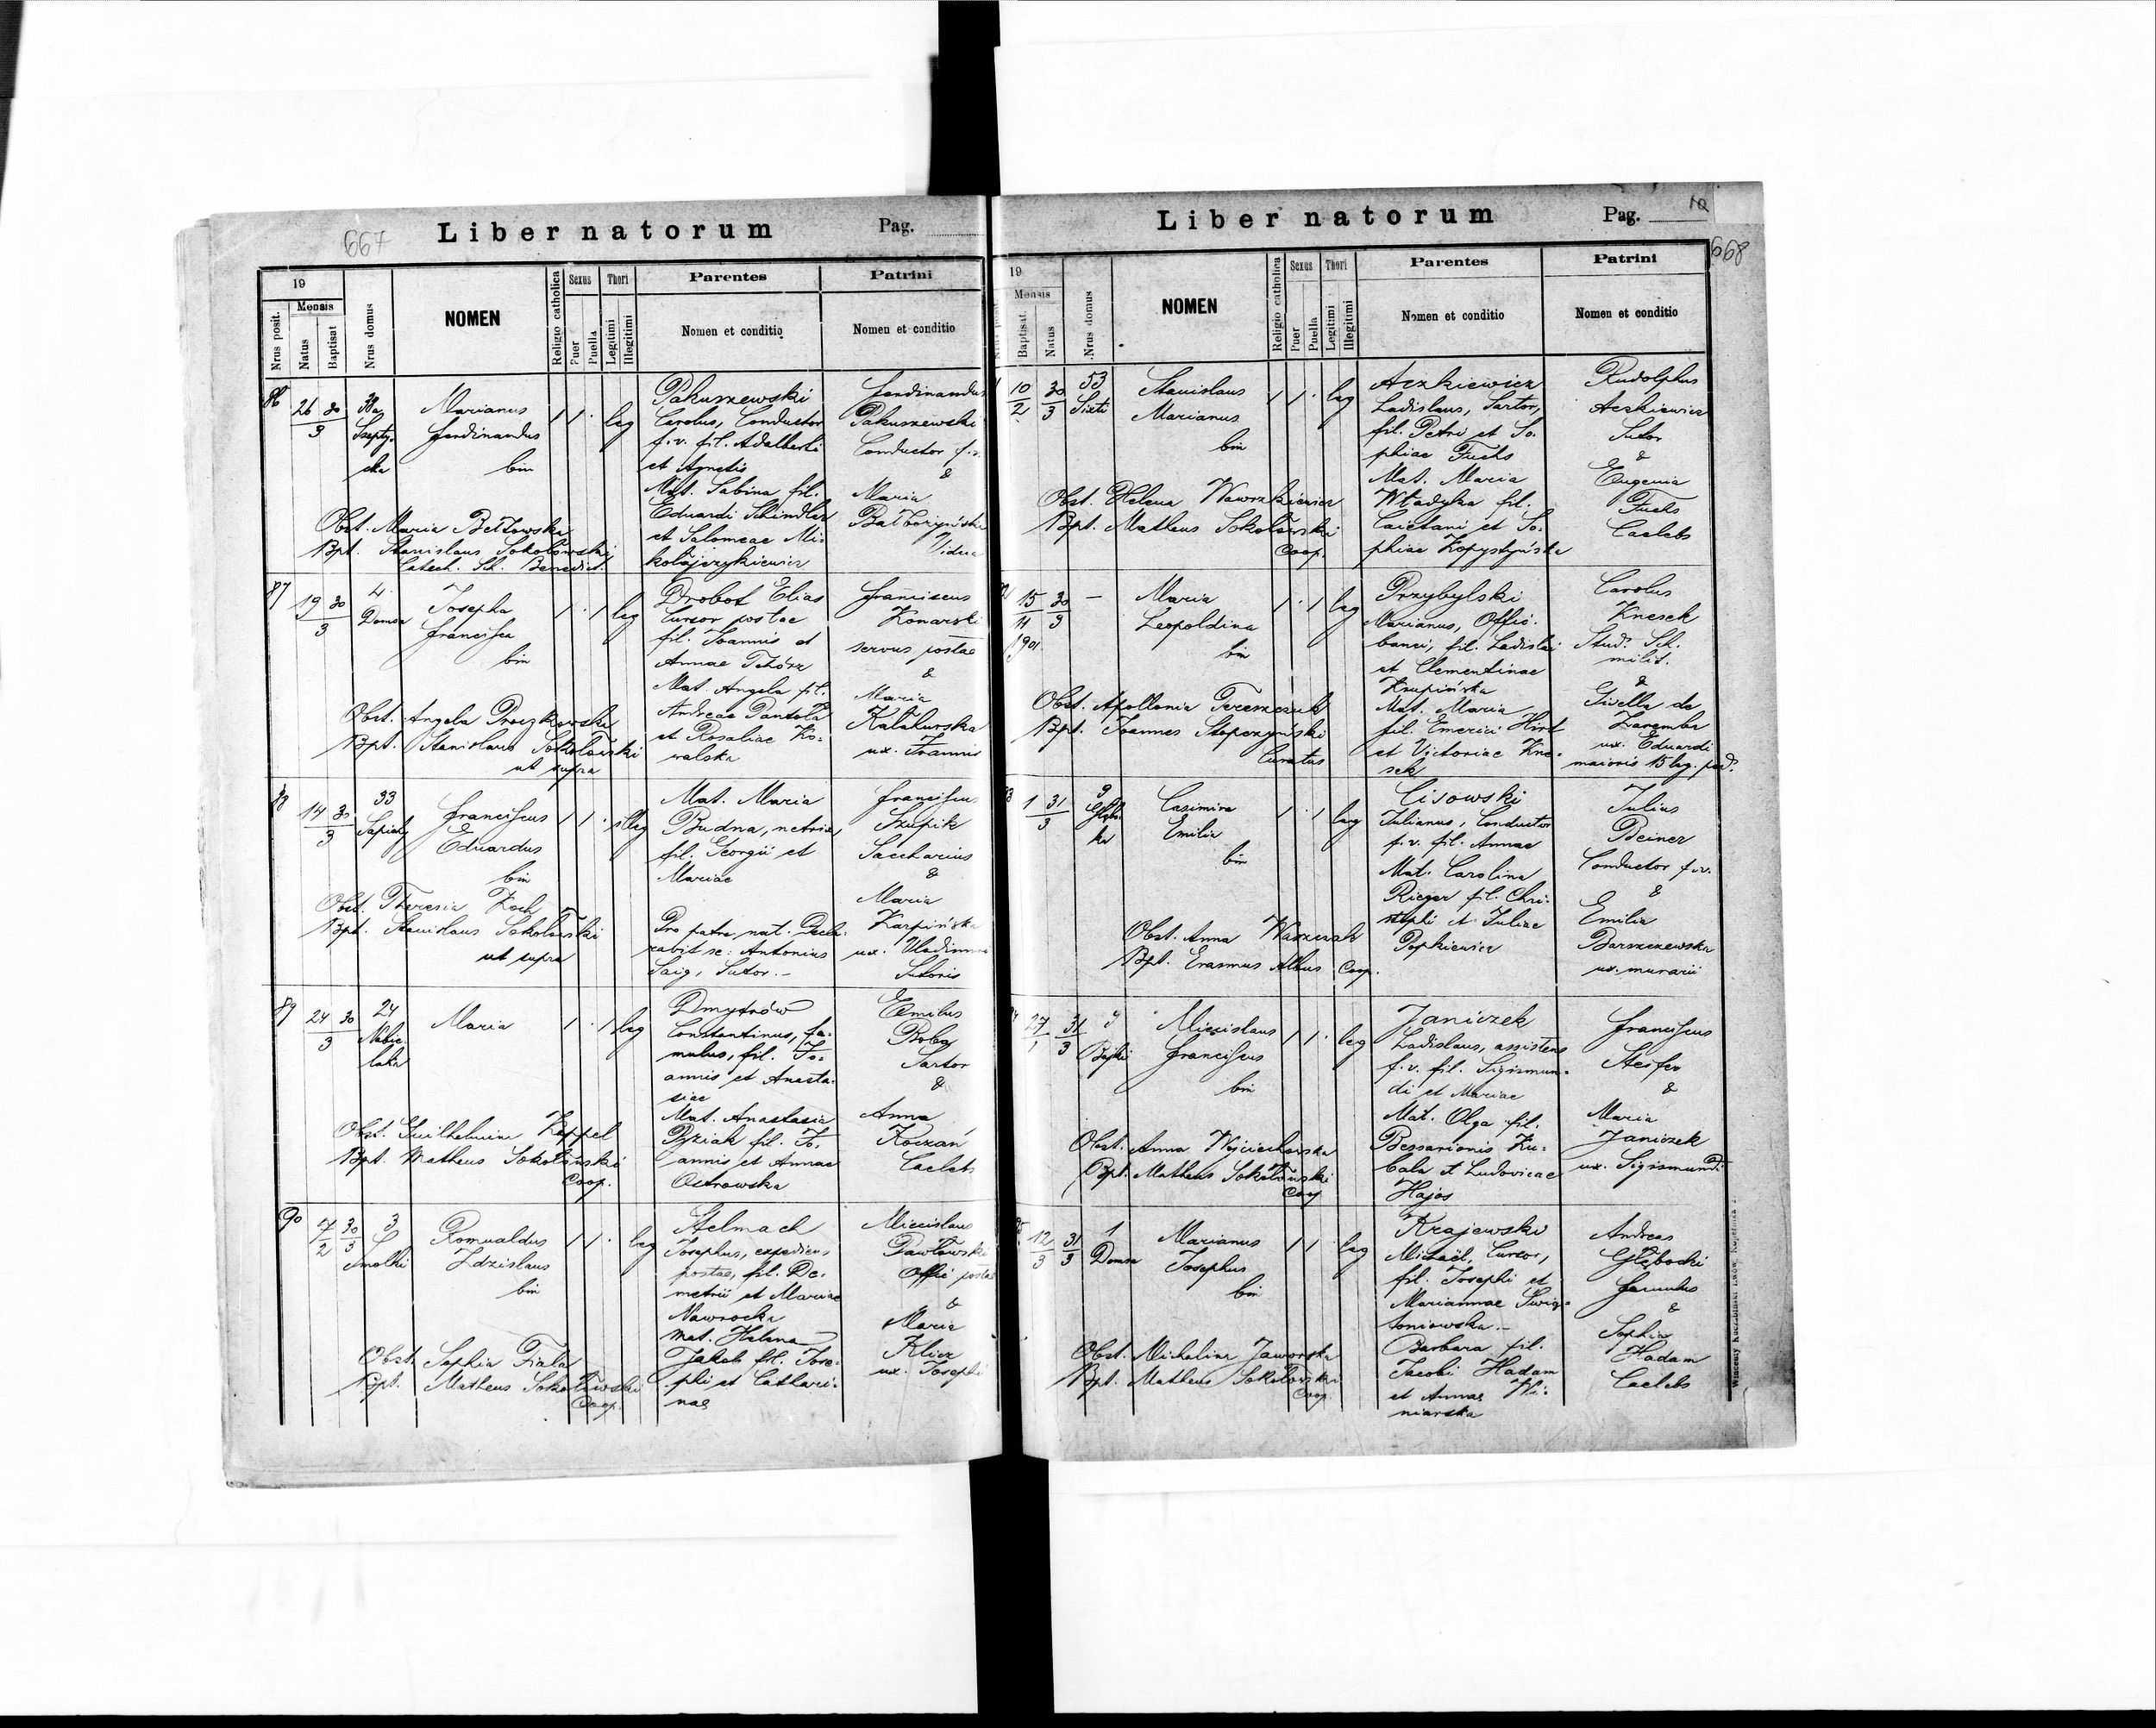 667
Liber natorum
Pag.
19
Mensis
Nrus posit.
Natus
Baptisat
Nrus domus
NOMEN
Religio catholica
Sexus
Puer
Puella
Thori
Legitimi
Illegitimi
Parentes
Nomen et conditio
Patrini
Nomen et conditio
86
26 30
3
38a
Szepty-
cka
Marianus
Ferdinandus
bin
1 1 · leg
Pakuszewski
Carolus, Conductor
f. v. fil. Adalberti
et Agnetis
Mat. Sabina fil.
Eduardi Schindler
et Salomeae Mi-
kołajczykiewicz
Ferdinandus
Pakuszewski
Conductor f. v.
&
Maria
Vidua
Obst. Maria Bełtowska
Bpt. Stanislaus Sokołowski,
Catech. Sch. Benedict.
87
19 30
3
4
Domsa
Josepha
Francisca
bin
1 · 1 leg
Drobot Elias
Cursor postae
fil. Joannis et
Annae Tchórz
Mat. Angela fil.
Andreae Pantoła
et Rosaliae Ko-
walska
Franciscus
Konarski
servus postae
&
Maria
Kałahurska
ux. Joannis
Obst. Angela Proszkowska
Bpt. Stanislaus Sokołowski
ut supra
88
14 30
3
33
Sapiehy
Franciscus
Eduardus
bin
1 1 · illeg
Mat. Maria
Budna, netrix,
fil. Georgii et
Mariae
Pro patre nat. Decla-
rabit se: Antonius
Saig, Sutor. -
Franciscus
Szupik
Saccharius
&
Maria
Karpińska
ux. Vladimiri
Sutoris
Obst. Theresia Koch
Bpt. Stanislaus Sokołowski
ut supra
89
24 30
3
24
Nabie-
laka
Maria
1 · 1 leg
Dmytrów
Constantinus, fa-
mulus, fil. Jo-
annis et Anasta-
siae
Mat. Anastasia
Pyziak fil. Jo-
annis et Annae
Ostrowska
Emilus
Roba
Sartor
&
Anna
Koczań
Caelebs
Obst. Guilhelmina Keppel
Bpt. Matheus Sokołowski
Coop.
90
7 30
2 3
3
S
Smolki
Romualdus
Zdzislaus
bin
1 1 · leg
Stelmach
Josephus, expediens
postae, fil. De-
metrii et Mariae
Nawrocka
Mat. Helena
Jakob fil. Jose-
phi et Cathari-
nae
Miecislaus
Pawłowski
Offic. postae
&
Maria
Klisz
ux. Josephi
Obst. Sophia Fiala
Bpt. Matheus Sokołowski
Coop.
Liber natorum
Pag. 10
668
19
Mensis
Baptisat.
Natus
Nrus domus
NOMEN
Religio catholica
Sexus
Puer
Puella
Thori
Legitimi
Illegitimi
Parentes
Nomen et conditio
Patrini
Nomen et conditio
10 30
2 3
53
Sixti
Stanislaus
Marianus
bin
1 1 · leg
Aczkiewicz
Ladislaus, Sartor,
fil. Petri et So-
phiae Fuchs
Mat. Maria
Władyka fil.
Caietani et So-
phiae Kopystyńska
Rudolphus
Aczkiewicz
Sutor
&
Eugenia
Fuchs
Caelebs
Obst. Helena Wawrzkiewicz
Bpt. Matheus Sokołowski
Coop.
15 30
11 3
1901
—
Maria
Leopoldina
bin
1 · 1 leg
Przybylski
Marianus, Offic.
banci, fil. Ladislai
et Clementinae
Krupińska
Mat. Maria
fil. Emerici Hirt
et Victoriae Kne-
sek
Carolus
Knesek
Stud. Sch.
milit.
&
Givella de
Zaremba
ux. Eduardi
maioris 15 leg. ped.
Obst. Apollonia Tereszczuk
Bpt. Joannes Stopczyński
Curatus
1 31
3
9
Casimira
Emilia
bin
1 · 1 leg
Cisowski
Julianus, Conductor
f. v. fil. Annae
Mat. Carolina
Rieger fil. Chri-
stophi et Juliae
Popkiewicz
Julius
Beiner
Conductor f. v.
&
Emilia
Barszczewska
ux. murarii
Obst. Anna Waszczuk
Bpt. Erasmus Albus Coop.
27 31
1 3
9
Bajki
Miecislaus
Franciscus
bin
1 1 · leg
Janiczek
Ladislaus, assistens
f. v. fil. Sigismun-
di et Mariae
Mat. Olga fil.
Bessarionis Ku-
bala et Ludovicae
Hajos
Franciscus
Steifer
&
Maria
Janiczek
ux. Sigismundi
Obst. Anna Wojciechowska
Bpt. Matheus Sokołowski
Coop
12 31
3 3
1
Domsa
Marianus
Josephus
bin
1 1 · leg
Krajewski
Michaël, Cursor,
fil. Josephi et
Mariannae Swię-
toniowska. -
Barbara fil.
Jacobi Hadam
et Annae Wi-
niarska
Andreas
Głębocki
Famulus
&
Sophia
Hadam
Caelebs
Obst. Michalina Jaworska
Bpt. Matheus Sokołowski
Coop.